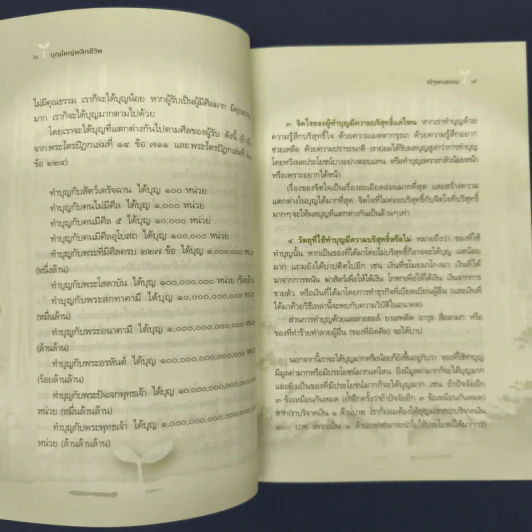 ๖ บุญใหญ่พลิกชีวิต
ไม่มีคุณธรรม เราก็จะได้บุญน้อย หากผู้รับเป็นผู้มีศีลมาก มีคุณธรรม
มาก เราก็จะได้บุญมากตามไปด้วย
โดยเราจะได้บุญที่แตกต่างกันไปตามศีลของผู้รับ ดังนี้
จากพระไตรปิฎกเล่มที่ ๑๔ ข้อ ๗๑๑ และพระไตรปิฎกเล่มที่
ข้อ ๒๒๔)
ทำบุญกับสัตว์เดรัจฉาน ได้บุญ ๑๐๐ หน่วย
ทำบุญกับคนไม่มีศีล ได้บุญ ๑,๐๐๐ หน่วย
ทำบุญกับคนมีศีล ๕ ได้บุญ ๑๐,๐๐๐ หน่วย
ทำบุญกับคนมีศีลอุโบสถ ได้บุญ ๑๐๐,๐๐๐ หน่วย
ทำบุญกับพระที่มีศีลครบ ๒๒๗ ข้อ ได้บุญ ๑,๐๐๐,๐๐๐
(หนึ่งล้าน)
ทำบุญกับพระโสดาบัน ได้บุญ ๑๐๐,๐๐๐,๐๐๐ หน่วย (ร้อยล้าน)
ทำบุญกับพระสกทาคามี ได้บุญ ๑๐,๐๐๐,๐๐๐,๐๐๐
(หมื่นล้าน)
ทำบุญกับพระอนาคามี ได้บุญ ๑,๐๐๐,๐๐๐,๐๐๐,๐๐๐
(ล้านล้าน)
ทำบุญกับพระอรหันต์ ได้บุญ ๑๐๐,๐๐๐,๐๐๐,๐๐๐,๐๐๐
(ร้อยล้านล้าน)
ทำบุญกับพระปัจเจกพุทธเจ้า ได้บุญ ๑๐,๐๐๐,๐๐๐,๐๐๐,๐๐๐,๐๐๐
หน่วย (หมื่นล้านล้าน)
ทำบุญกับพระพุทธเจ้า ได้บุญ ๑,๐๐๐,๐๐๐,๐๐๐,๐๐๐,๐๐๐,๐๐๐
หน่วย (ล้านล้านล้าน)
๗
๓. จิตใจของผู้ทำบุญมีความบริสุทธิ์แค่ไหน หากเราทำบุญด้วย
ความรู้สึกบริสุทธิ์ใจ ด้วยความเมตตากรุณา ด้วยความรู้สึกอยาก
ช่วยเหลือ ด้วยความปรารถนาดี เราย่อมได้รับผลบุญสูงกว่าการทำบุญ
โดยหวังผลประโยชน์บางอย่างตอบแทน หรือทำบุญเพราะกลัวน้อยหน้า
หรือเพราะอยากได้หน้า
เรื่องของจิตใจเป็นเรื่องละเอียดอ่อนมากที่สุด และสร้างความ
แตกต่างในบุญได้มากที่สุด จิตใจที่ไม่ค่อยบริสุทธิ์กับจิตใจที่บริสุทธิ์
มากๆ จะให้ผลบุญที่แตกต่างกันเป็นล้านๆ เท่า
๔. วัตถุที่ใช้ทำบุญมีความบริสุทธิ์หรือไม่ หมายถึงว่า ของที่ใช้
ทำบุญนั้น หากเป็นของที่ได้มาโดยไม่บริสุทธิ์ก็อาจจะได้บุญ แต่น้อย
มาก แถมยังได้บาปติดไปอีก เช่น เงินที่ขโมยมาโกงมา เงินที่ได้
มาจากการพนัน ฆ่าสัตว์เพื่อให้ได้เงิน โกหกเพื่อให้ได้เงิน เงินจากการ
ขายตัว หรือเงินที่ได้มาโดยการทำธุรกิจที่เบียดเบียนผู้อื่น
ส่วนการทำบุญด้วยแอลกอฮอล์ ยาเสพติด อาวุธ สื่อลามก หรือ
ของที่ทำร้ายทำลายผู้อื่น (ของที่ผิดศีล) จะได้บาป
นอกจากนี้เราจะได้บุญมากหรือน้อยก็ยังขึ้นอยู่กับว่า ของที่ใช้ทำบุญ
มูลค่ามากหรือมีประโยชน์มากแค่ไหน ยิ่งมีมูลค่ามากก็จะได้บุญมาก
และยิ่งเป็นของที่มีประโยชน์มากก็จะได้บุญมาก เช่น ถ้าปัจจัยอีก
๓ ข้อเหมือนกันหมด